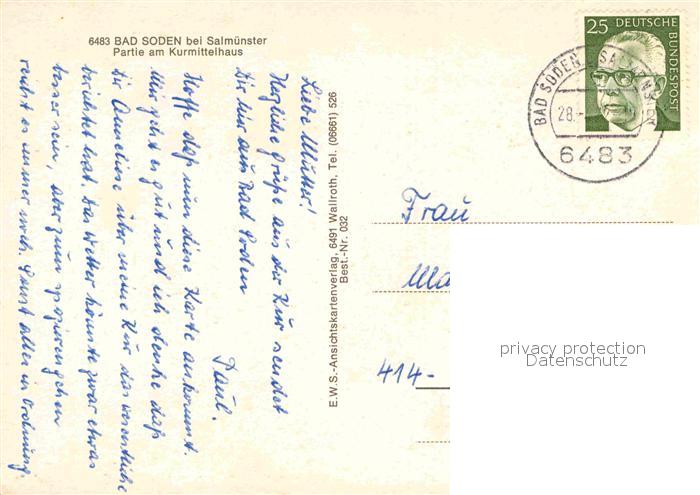 6483 BAD SODEN bei Salmünster
Partie am Kurmittelhaus
Liebe Mutter!
Herzliche Grüße aus der Kur sendet
Dir hier aus Bad Soden
Paul.
Hoffe daß nun diese Karte ankommt.
Mir geht es gut und ich denke daß
Dir Anneliese über meine Kur das wesentliche
berichtet hat. Das Wetter könnte zwar etwas
besser sein, aber zum spazierengehen
reicht es immer noch. Sonst alles in Ordnung.
E.W.S.-Ansichtskartenverlag, 6491 Wallroth, Tel. (06661) 526
Best.-Nr. 032
25 DEUTSCHE
BUNDESPOST
BAD SODEN
28.
6483
Frau
414-
privacy protection
Datenschutz